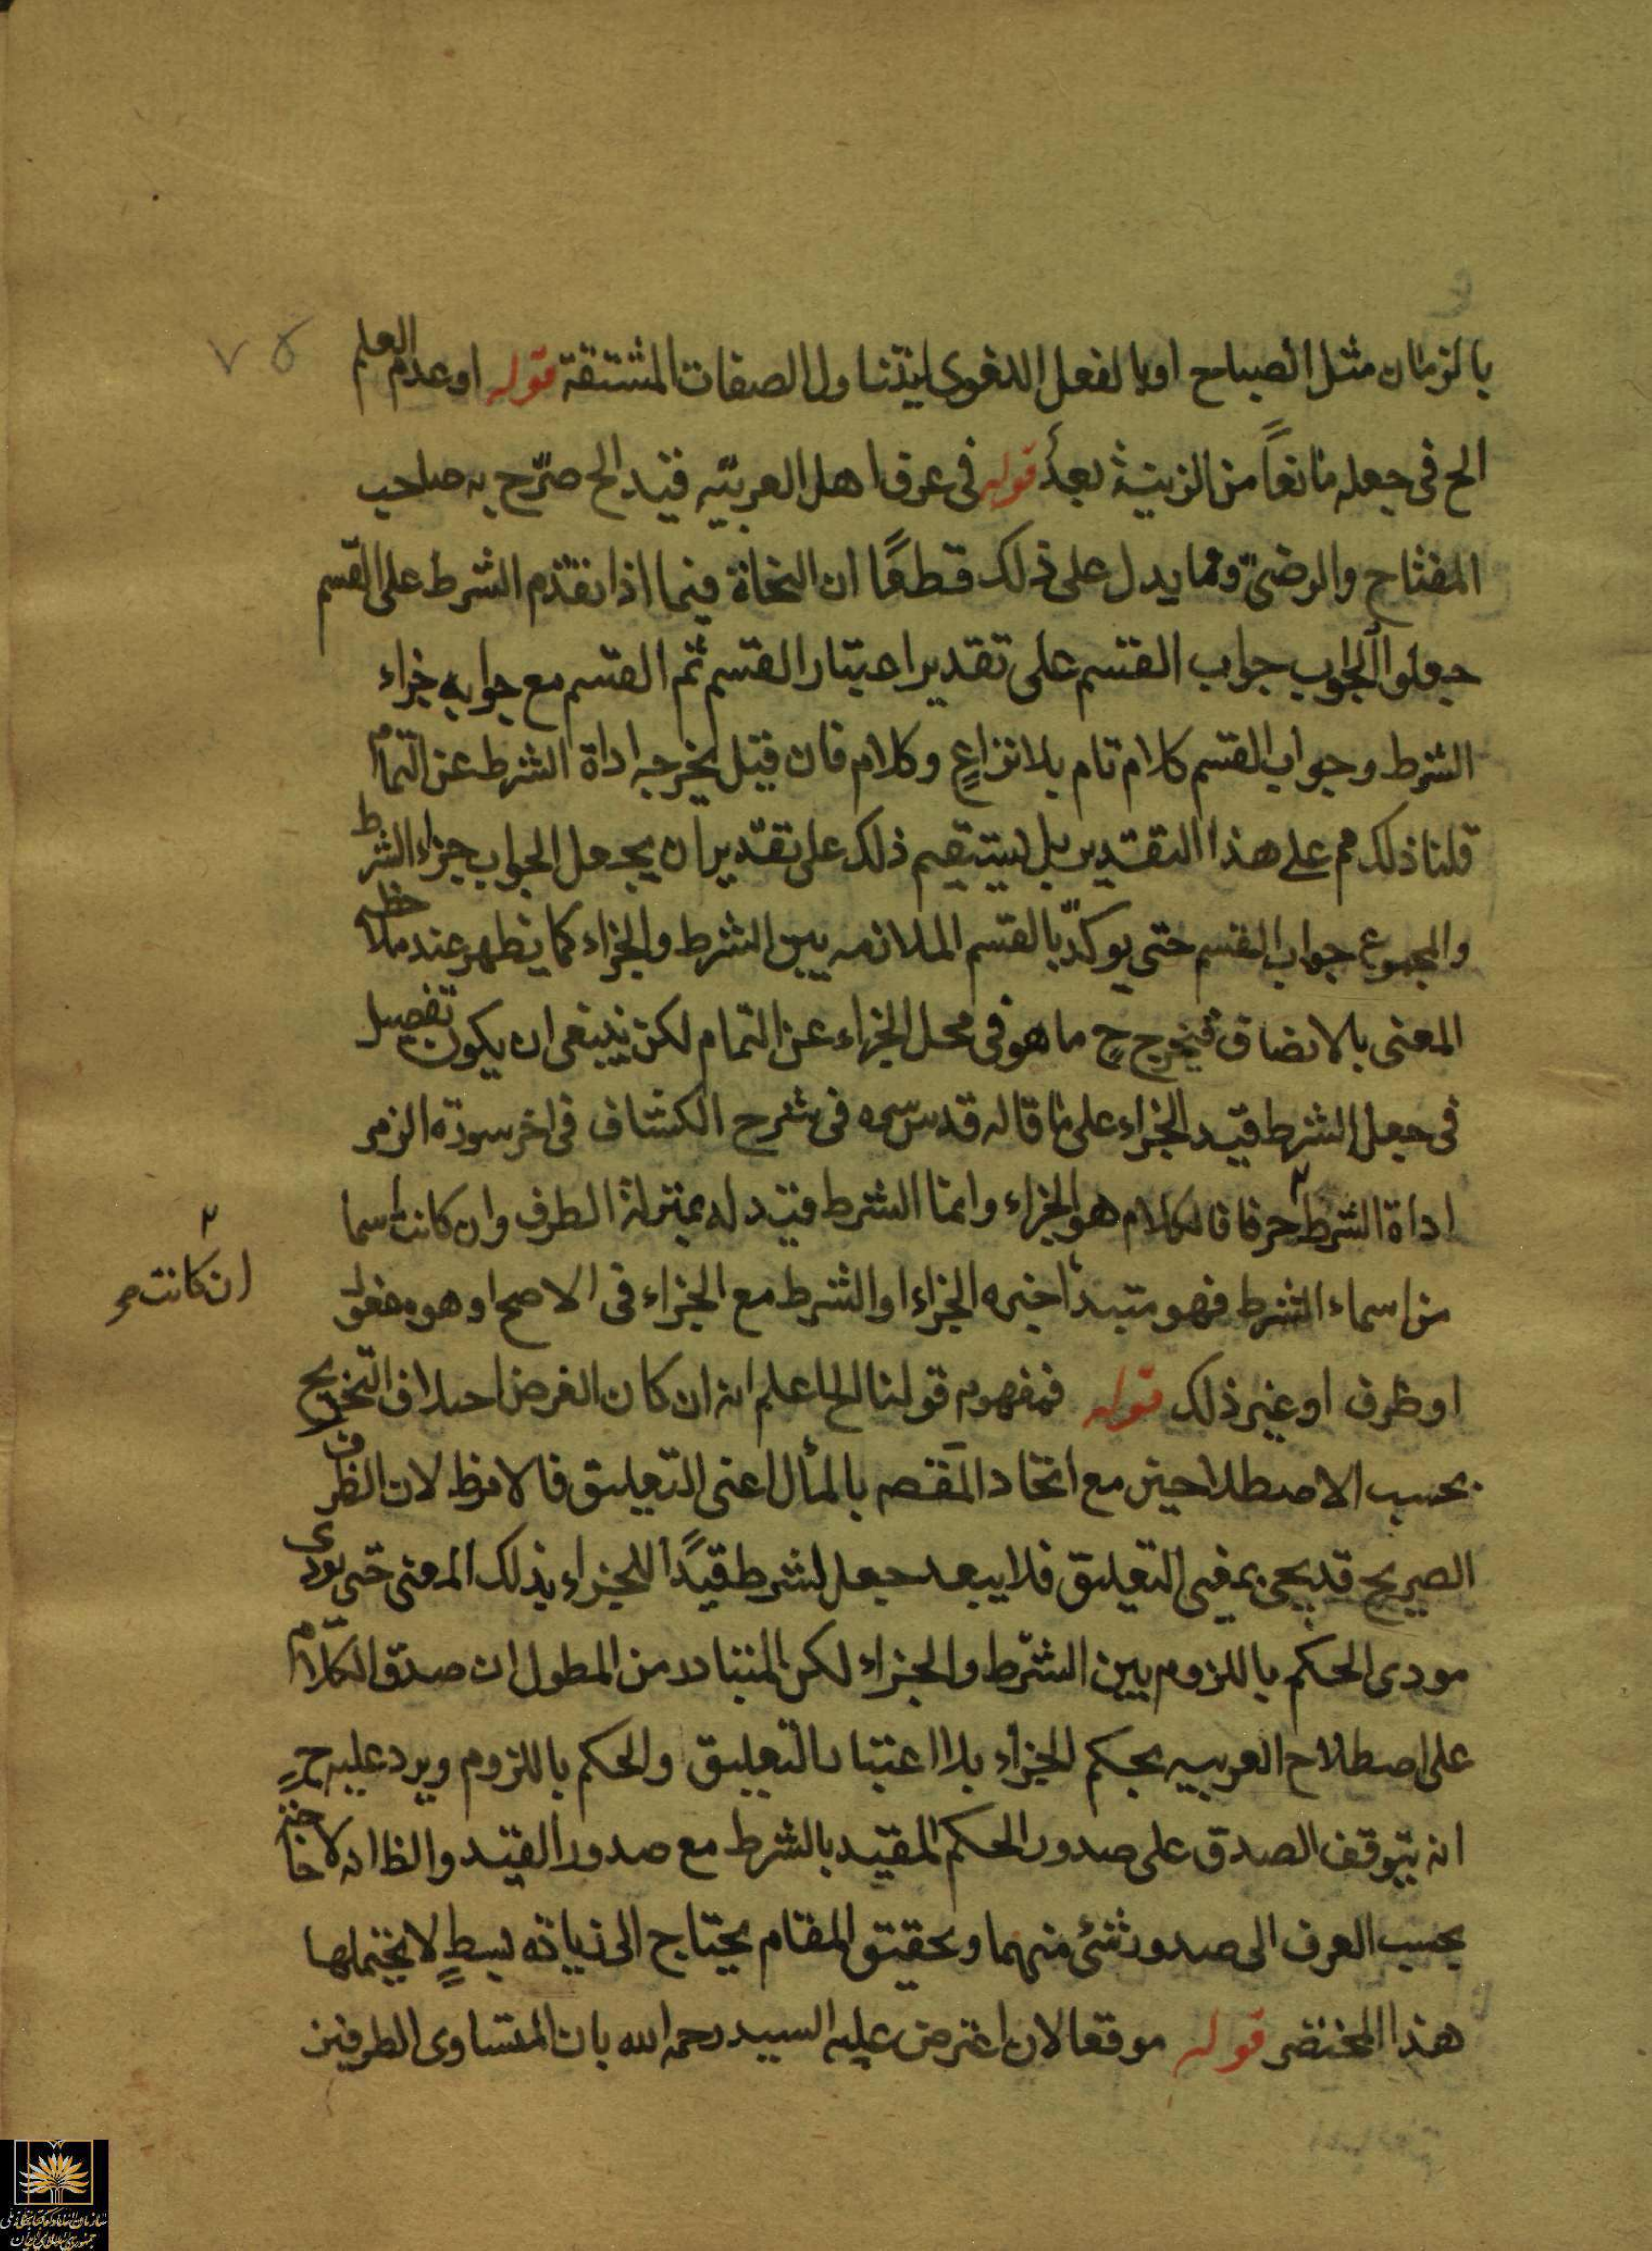 ٧٥
بالزمان مثل الصباح او بالفعل اللغوى ليتناول الصفات المشتقة قوله او عدم العلم
الخ فى جعله مانعاً من الزينة بعدُ قوله فى عرف اهل العربيّه قيد الخ صرّح به صاحب
المفتاح والرضىّ ومما يدل على ذلك قطعًا ان النحاة فيما اذا تقدم الشرط على القسم
جعلوا الجواب جواب القسم على تقدير اعتبار القسم ثم القسم مع جوابه جزاء
الشرط وجواب القسم كلام تام بلا نزاعٍ وكلام فان قيل يخرجه اداة الشرط عن التمام
قلنا ذلك مم على هذا التقدير بل يستقيم ذلك على تقدير ان يجعل الجواب جزاء الشرط
والمجموع جواب القسم حتى يوكّد بالقسم الملازمه بين الشرط والجزاء كما يظهر عند ملاحظه
المعنى بالانصاف فيخرج ح ما هو فى محل الجزاء عن التمام لكن ينبغى ان يكون تفصيل
فى جعل الشرط قيد الجزاء على ما قاله قدس سره فى شرح الكشاف فى اخر سورة الزمر
اداة الشرط ٢ حرفا فالكلام هو الجزاء وانما الشرط قيد له بمنزلة الظرف وان كانت اسما
ان كانت صح ٢
من اسماء الشرط فهو مبتدأ خبره الجزاء او الشرط مع الجزاء فى الاصح او هو مفعول
او ظرف او غير ذلك قوله فمفهوم قولنا الخ اعلم انه ان كان الغرض اختلاف التخريج
بحسب الاصطلاحين مع اتحاد المقصم بالمأل اعنى التعليق فالامر ظ لان الظرف
الصريح قد يجئ بمعنى التعليق فلا يبعد جعل الشرط قيدًا للجزاء بذلك المعنى حتى يودى
مودى الحكم باللزوم بين الشرط والجزاء لكن المتبادر من المطول ان صدق الكلام
على اصطلاح العربيه بحكم الجزاء بلا اعتبار التعليق والحكم باللزوم ويرد عليه ح
انه يتوقف الصدق على صدور الحكم المقيد بالشرط مع صدور القيد والظ انه لا حاجة
بحسب العرف الى صدور شئ منهما وتحقيق المقام يحتاج الى زياده بسطٍ لا يحتملها
هذا المختصر قوله موقعا لان اعترض عليه السيد رحمه الله بان المتساوى الطرفين